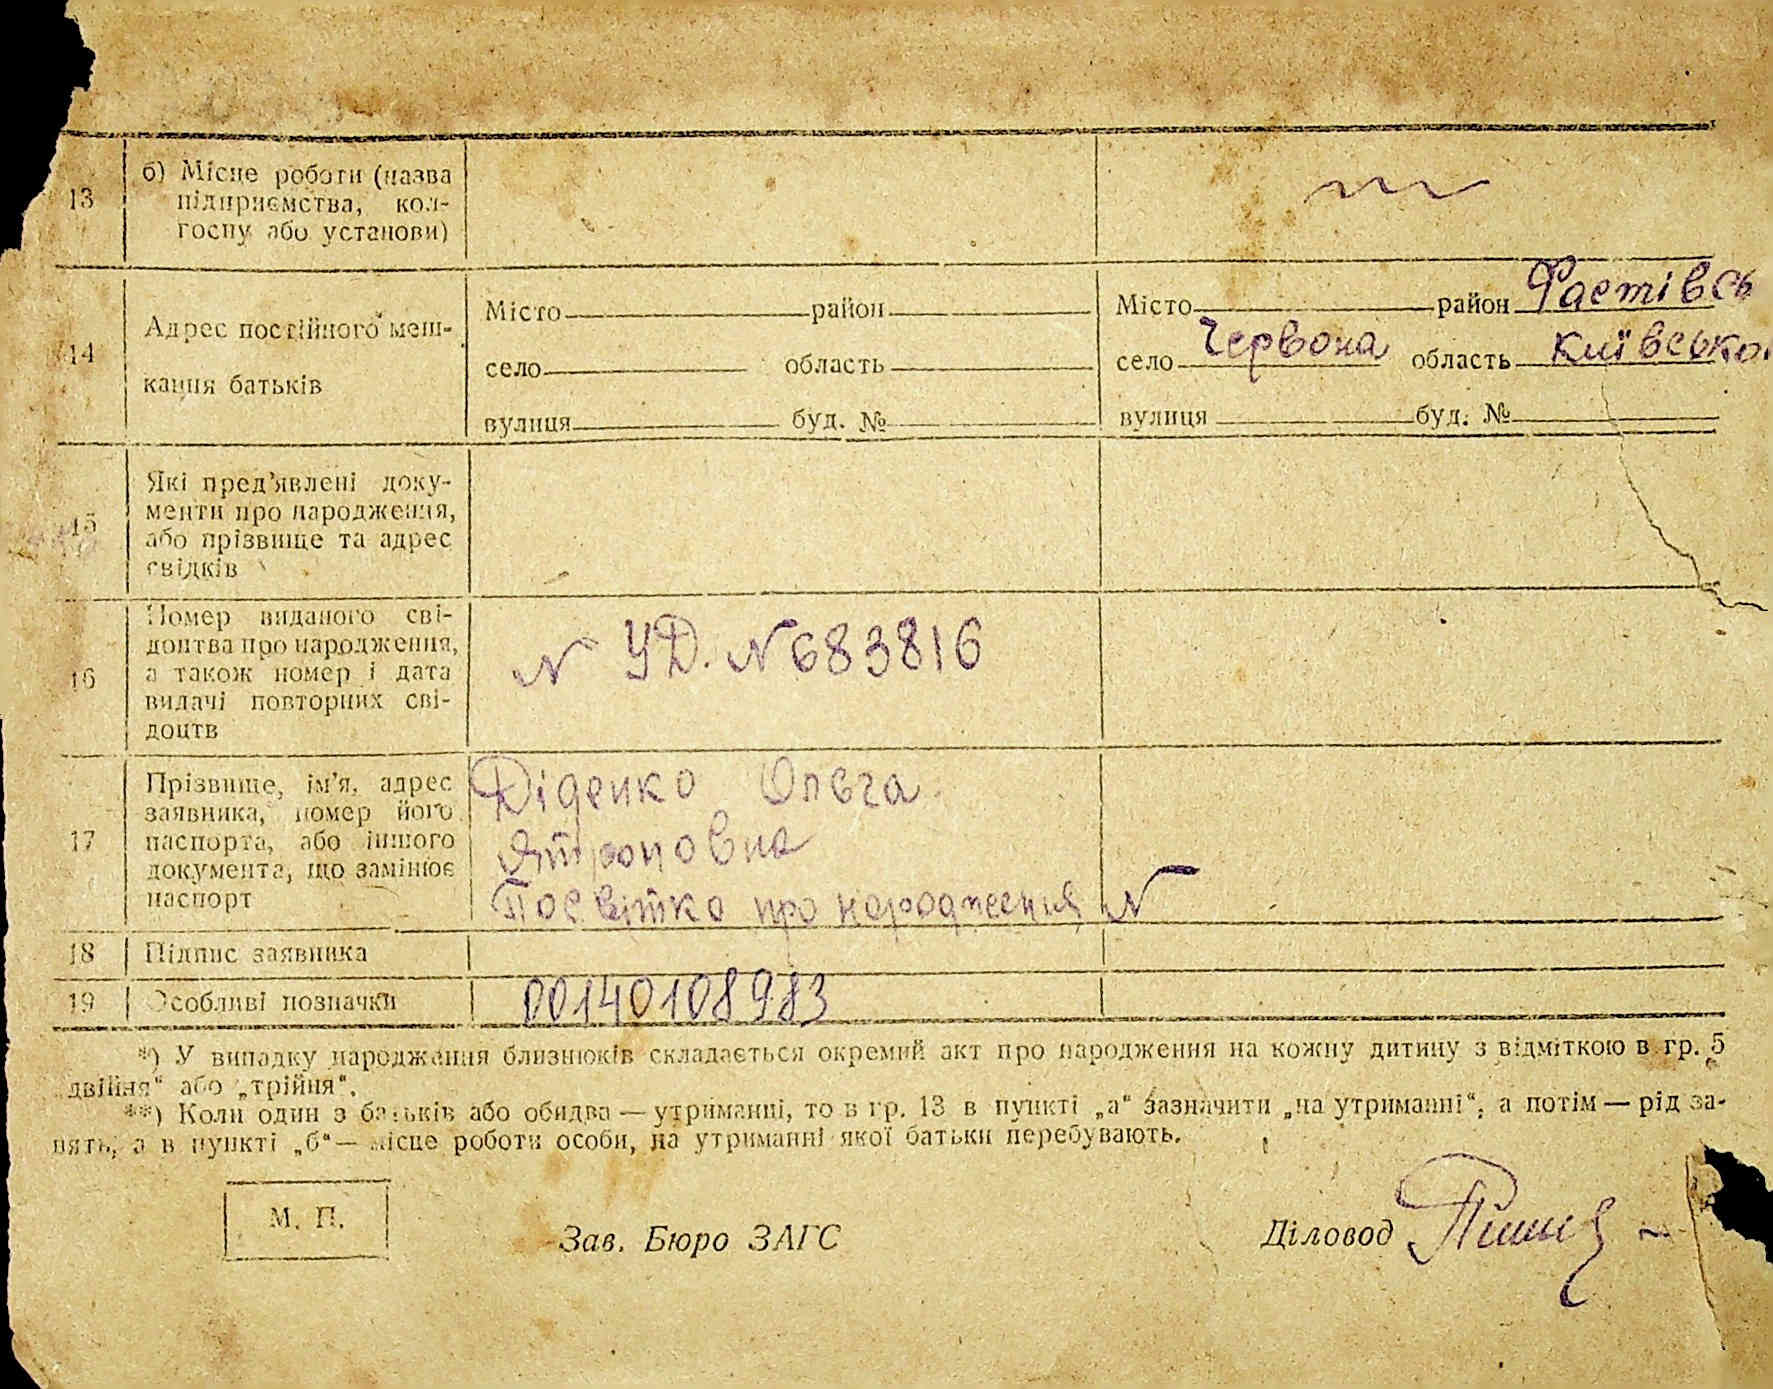 13
б) Місце роботи (назва
підприємства, кол-
госпу або установи)
14
Адрес постійного меш-
кання батьків
Місто район
село область
вулиця буд. №
Місто район Фастівсь
село Червона область Київсько
вулиця буд. №
15
Які пред'явлені доку-
менти про народження,
або прізвище та адрес
свідків
16
Номер виданого сві-
доцтва про народження,
а також номер і дата
видачі повторних сві-
доцтв
N УД. N 683816
17
Прізвище, ім'я, адрес
заявника, номер його
паспорта, або іншого
документа, що замінює
паспорт
Діденко Ольга
Посвітка про народження N
18 Підпис заявника
19 Особливі позначки 00140108983
*) У випадку народження близнюків складається окремий акт про народження на кожну дитину з відміткою в гр. 5
„двійня“ або „трійня“.
**) Коли один з батьків або обидва — утриманні, то в гр. 13 в пункті „а“ зазначити „на утриманні“, а потім — рід за-
нять, а в пункті „б“ — місце роботи особи, на утриманні якої батьки перебувають.
М. П.
Зав. Бюро ЗАГС
Діловод